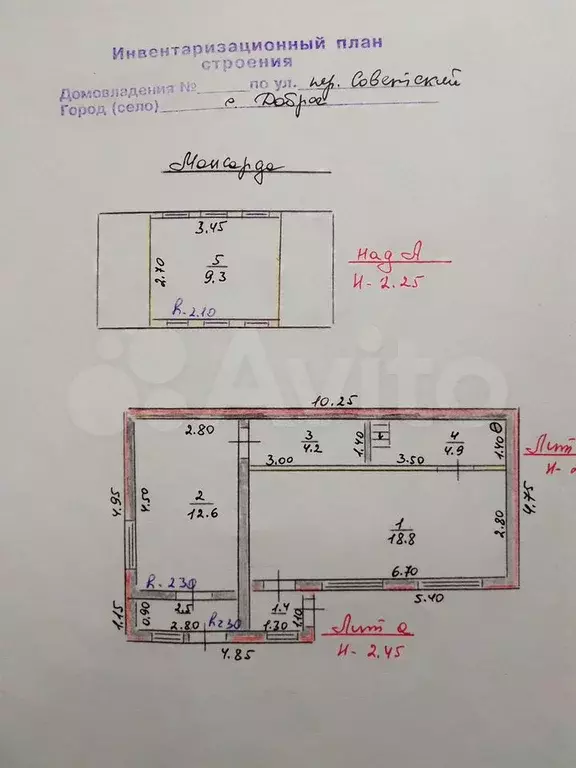 Инвентаризационный план
строения
Домовладения № по ул. пер. Советский
Город (село) с. Доброе
Мансарда
3.45
2.70
5
9.3
h-2.10
над А
Н- 2.25
Avito
10.25
2.80
3
4.2
1.40
4
4.9
1.40
Лит
Н-
3.00
3.50
4.95
4.50
2
12.6
1
18.8
2.80
4.75
6.70
h-230
5.40
1.15
0.90
2.5
1.4
1.10
2.80
h230
1.30
Лит а
Н- 2.45
4.85